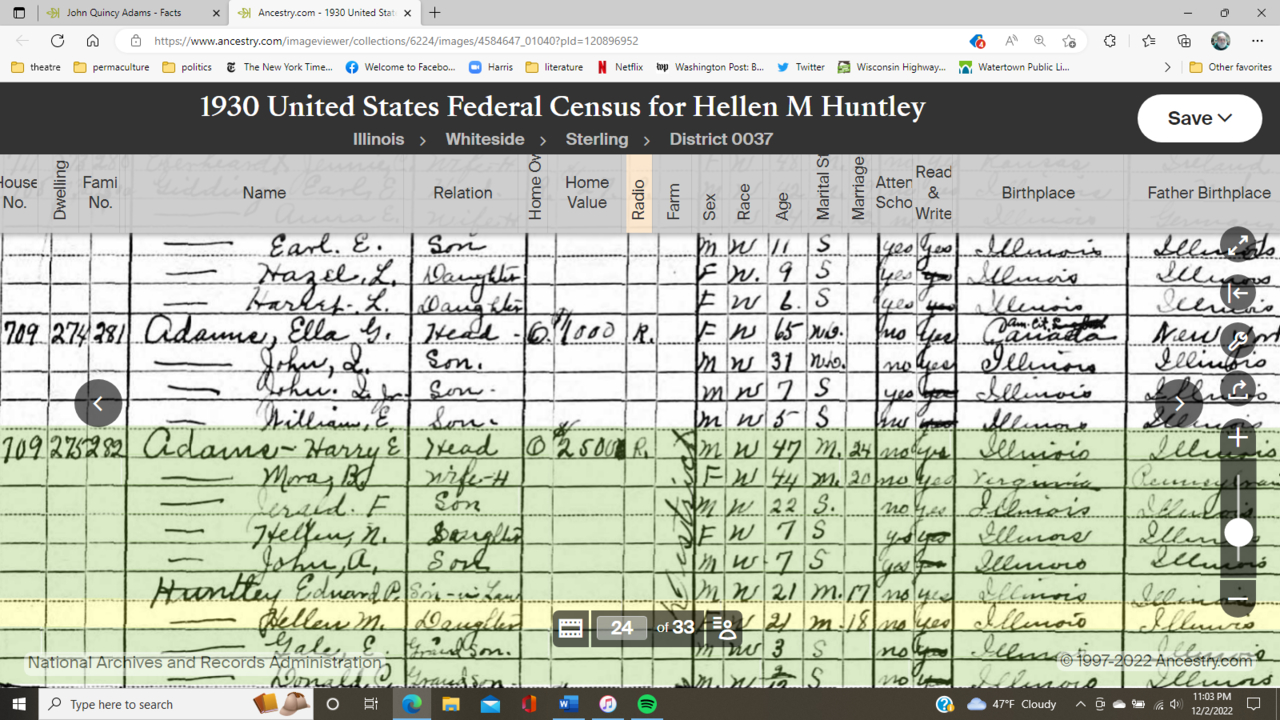 John Quincy Adams - Facts
Ancestry.com - 1930 United Stat
https://www.ancestry.com/imageviewer/collections/6224/images/4584647_01040?pId=120896952
theatre permaculture politics The New York Time... Welcome to Facebo... Harris literature Netflix Washington Post: B... Twitter Wisconsin Highway... Watertown Public Li... Other favorites
1930 United States Federal Census for Hellen M Huntley
Illinois > Whiteside > Sterling > District 0037
Save
House No. Dwelling Fami No. Name Relation Home Ow Home Value Radio Farm Sex Race Age Marital St Marriage Atten Scho Read & Write Birthplace Father Birthplace
Earl. E. Son M W 11 S yes yes Illinois Illinois
Hazel, L. Daughter F W. 9 S yes yes Illinois Illinois
L. Daughter F W 6 S yes yes Illinois Illinois
709 274 281 Adams, Ella G. Head - O. 4000 R. F W 65 Wid. no yes Canada New
John, Q. Son. M W 31 no yes Illinois Illinois
John Q Jr. Son. M W 7 S yes yes Illinois Illinois
William, E. Son. M W 5 S no Illinois Illinois
709 275 282 Adams - Harry E Head O R. M W 47 M. 24 no yes Illinois Illinois
Wife-H F W 44 M. 20 no yes Virginia Pennsylvani
Jerald. F Son M W 22 S. no yes Illinois Illinois
N. Daughter F W 7 S yes yes Illinois Illinois
John, A, Son M W 7 S yes yes Illinois Illinois
Huntley Edward P. Son-in Law M W 21 M. 17 no yes Illinois Illinois
Hellen M. Daughter F W 21 M 18 no yes Illinois Illinois
24 of 33
Gale, E GrandSon. M W 3 S no Illinois
National Archives and Records Administration
© 1997-2022 Ancestry.com
Donald C Grandson S Illinois
Type here to search
47°F Cloudy
11:03 PM
12/2/2022